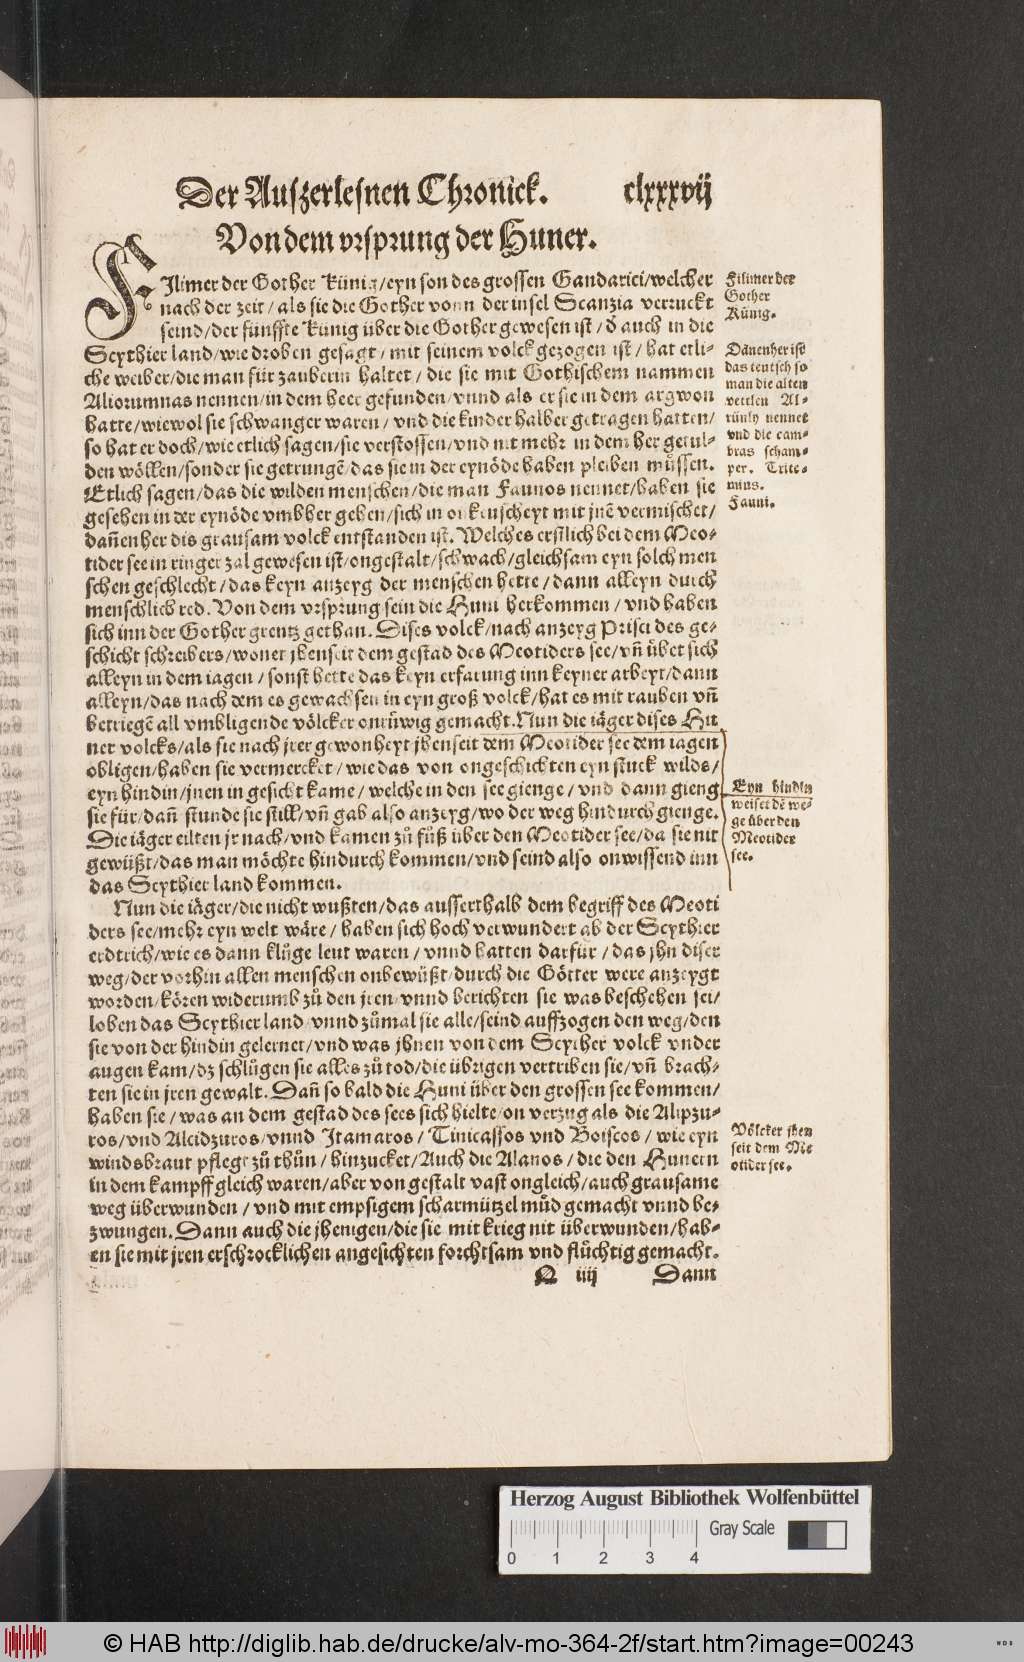 Der Auszerlesnen Chronick. clxxxvij
Von dem vrsprung der Huner.
FIlimer der Gother Künig/eyn son des grossen Gandarici/welcher
nach der zeit/als sie die Gother vonn der insel Scanzia verruckt
seind/der fünffte Künig über die Gother gewesen ist/d̃ auch in die
Scythier land/wie droben gesagt/mit seinem volck gezogen ist/hat etli-
che weiber/die man für zauberin haltet/die sie mit Gothischem nammen
Aliorumnas nennen/in dem heer gefunden/vnnd als er sie in dem argwon
hatte/wiewol sie schwanger waren/vnd die kinder halber getragen hatten/
so hat er doch/wie etlich sagen/sie verstossen/vnd nit mehr in dem her gerul-
den wöllen/sonder sie getrungẽ/das sie in der eynöde haben pleiben müssen.
Etlich sagen/das die wilden menschen/die man Faunos nennet/haben sie
gesehen in der eynöde vmbher gehen/sich in onkeuscheyt mit jnẽ vermischet/
dañenher dis grausam volck entstanden ist. Welches erstlich bei dem Meo-
tider see in ringer zal gewesen ist/ongestalt/schwach/gleichsam eyn solch men
schen geschlecht/das keyn anzeyg der menschen hette/dann alleyn durch
menschlich red. Von dem vrsprung sein die Huni herkommen/vnd haben
sich inn der Gother grentz gethan. Dises volck/nach anzeyg Prisci des ge-
schicht schreibers/wonet jhenseit dem gestad des Meotiders see/vñ übet sich
alleyn in dem iagen/sonst hette das keyn erfarung inn keyner arbeyt/dann
alleyn/das nach dem es gewachsen in eyn groß volck/hat es mit rauben vñ
betriegẽ all vmbligende völcker onrüwig gemacht. Nun die iäger dises Hu
ner volcks/als sie nach jrer gewonheyt jhenseit dem Meotider see dem iagen
obligen/haben sie vermercket/wie das von ongeschichten eyn stuck wilds/
eyn hindin/jnen in gesicht kame/welche in den see gienge/vnd dann gieng
sie für/dañ stunde sie still/vñ gab also anzeyg/wo der weg hindurch gienge.
Die iäger eilten jr nach/vnd kamen zů fůß über den Meotider see/da sie nit
gewüßt/das man möchte hindurch kommen/vnd seind also onwissend inn
das Scythier land kommen.
Nun die iäger/die nicht wußten/das ausserthalb dem begriff des Meoti
ders see/mehr eyn welt wäre/haben sich hoch verwundert ab der Scythier
erdtrich/wie es dann klůge leut waren/vnnd hatten darfür/das jhn diser
weg/der vorhin allen menschen onbewüßt/durch die Götter were anzeygt
worden/kören widerumb zů den jren/vnnd berichten sie was beschehen sei/
loben das Scythier land/vnnd zůmal sie alle/seind auffzogen den weg/den
sie von der hindin gelernet/vnd was jhnen von dem Scyther volck vnder
augen kam/dz schlůgen sie alles zů tod/die übrigen vertriben sie/vñ brach-
ten sie in jren gewalt. Dañ so bald die Huni über den grossen see kommen/
haben sie/was an dem gestad des sees sich hielte/on verzug als die Alipzu-
ros/vnd Alcidzuros/vnnd Itamaros/Tinicassos vnd Boiscos/wie eyn
windsbraut pflege zů thůn/hinzucket/Auch die Alanos/die den Hunern
in dem kampff gleich waren/aber von gestalt vast ongleich/auch grausame
weg überwunden/vnd mit empsigem scharmützel můd gemacht vnnd be-
zwungen. Dann auch die jhenigen/die sie mit krieg nit überwunden/hab-
en sie mit jren erschrocklichen angesichten forchtsam vnd flüchtig gemacht.
Q iiij Dann
Filimer der
Gother
Künig.
Dañenher ist
das teutsch so
man die alten
vettlen Al-
rünly nennet
vnd die cam-
bras scham-
per. Trite-
mius.
Fauni.
Eyn hindin
weiset dẽ we-
ge über den
Meotider
see.
Völcker jhen
seit dem Me
otider see.
Herzog August Bibliothek Wolfenbüttel
Gray Scale
0 1 2 3 4
© HAB http://diglib.hab.de/drucke/alv-mo-364-2f/start.htm?image=00243